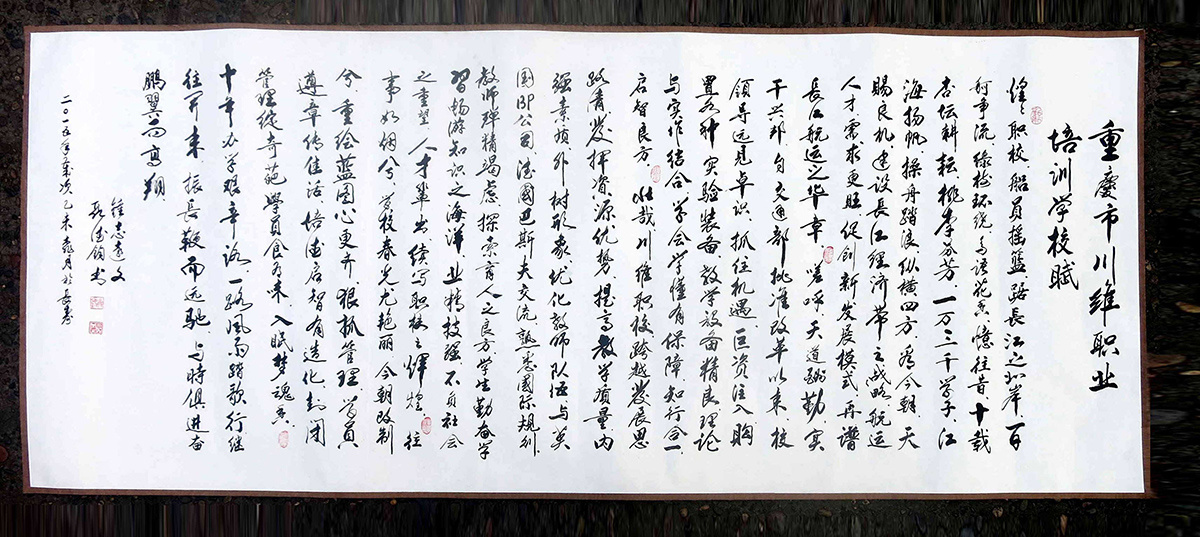 重慶市川維职业
培训学校赋
煌之职校船员摇篮踞長江之北岸百
舸事流绿树环绕鸟语花香憶往昔十载
杏坛耕耘桃李芬芳一万三千学子江
海扬帆操舟踏浪纵横四方尚今朝天
賜良机建设長江经济带之战略航运
人才需求更旺促創新发展模式再谱
長江航运之华章嗟呼天道酬勤实
干兴邦自交通部批准改革以来校
领导远見卓识抓住机遇巨资注入购
置各种实验装备教学设备精良理论
与实作结合学会学懂有保障知行合一
启智良方壮哉川维职校跨越发展思
路清发挥资源优势提高教学质量内
强素质外树形象优化教师队伍与英
国BP公司德國巴斯夫交流熟悉國际規则
教师殚精竭虑探索育人之良方学生勤奋学
習畅游知识之海洋业精技强不负社会
之重望人才辈出续写职校之輝煌往
事如烟兮学校春光尤艳丽今朝改制
兮重绘蓝图心更齐狠抓管理学員
遵章传佳话培德启智有造化封闭
管理绽奇葩学員食有来入眠梦魂香
十年办学艰辛路一路風雨踏歌行继
往开来振長鞭而远驰与時俱進奋
鹏翼而高翔
程志遠文
聂德銘书
二〇一五年歲次乙未春月於長寿